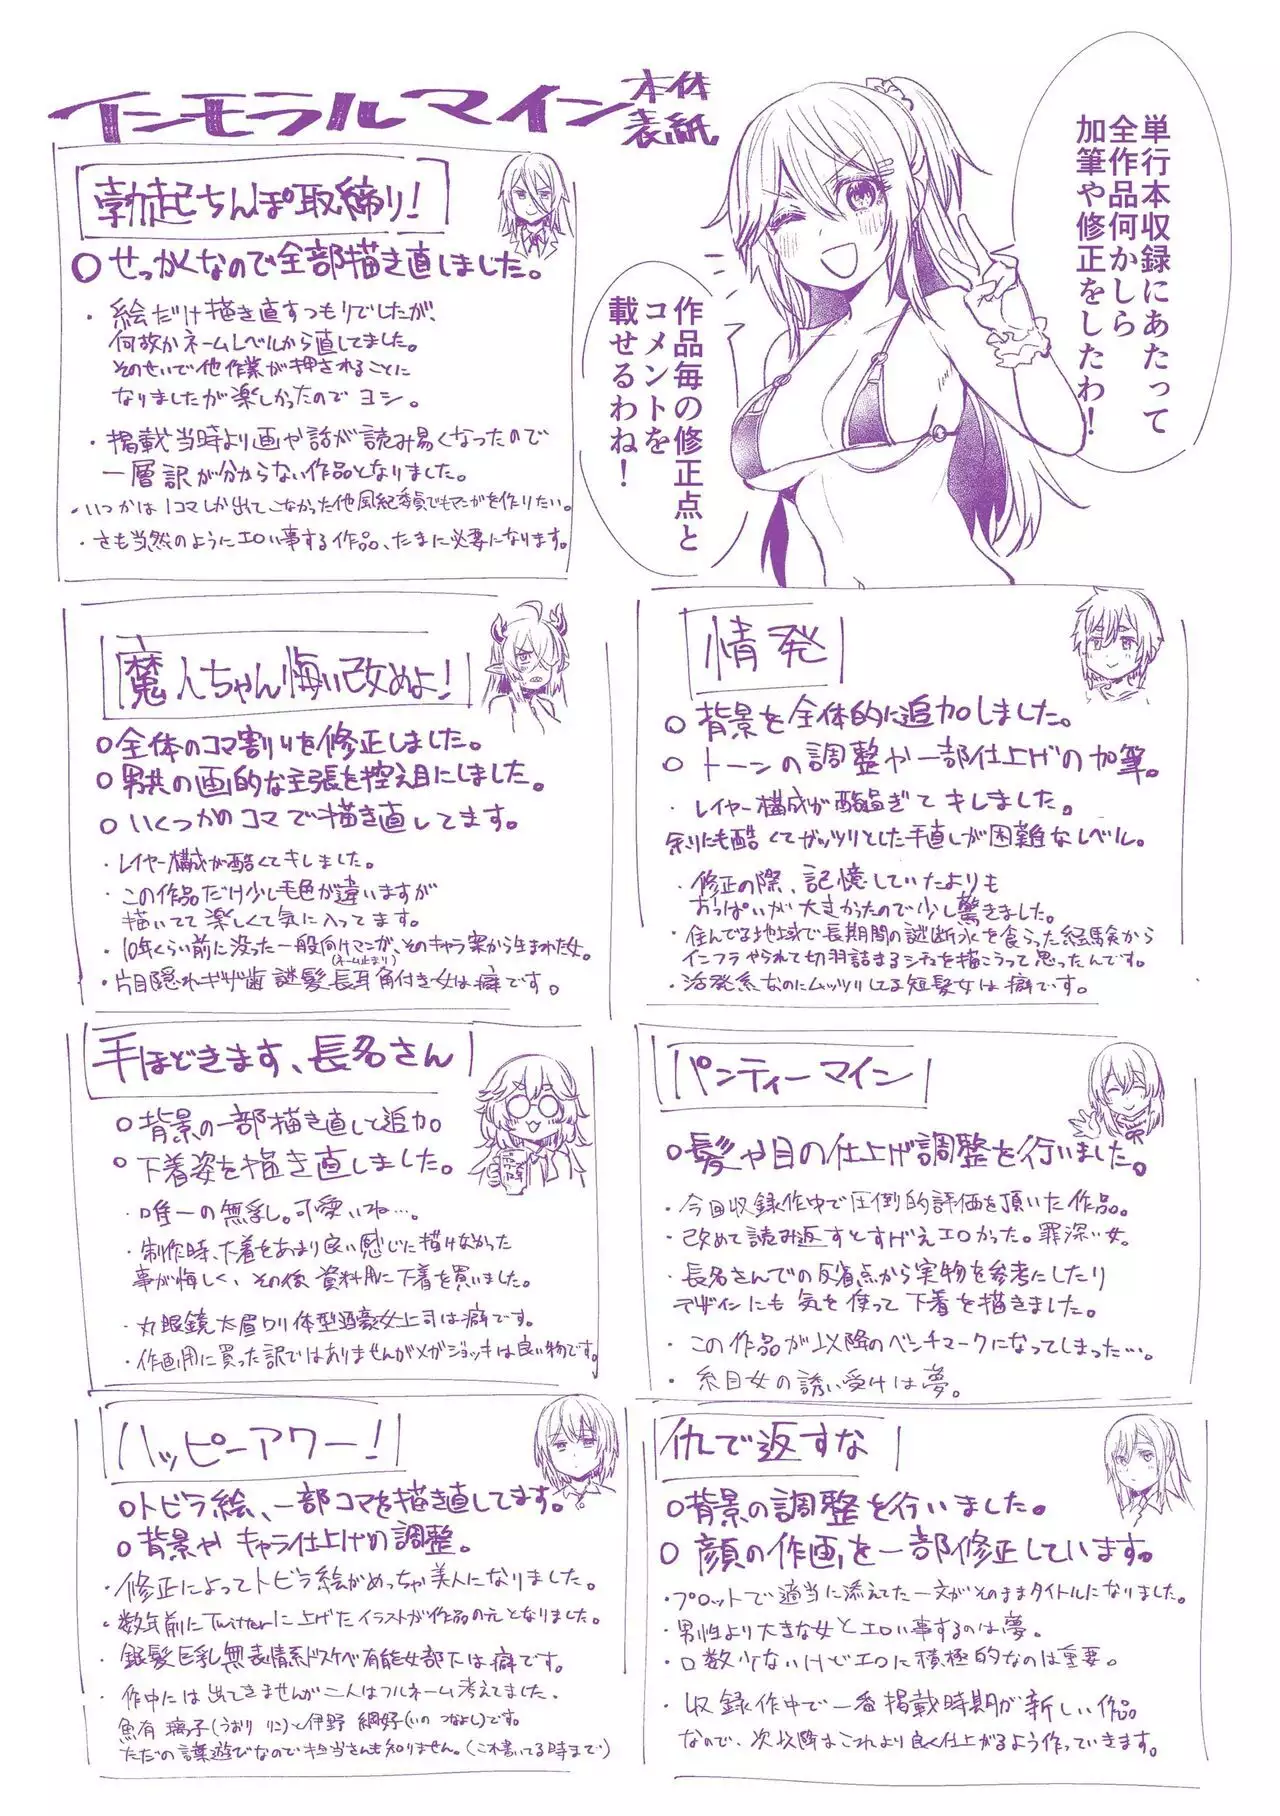 インモラルマイン本体表紙
単行本収録にあたって
全作品何かしら
加筆や修正をしたわ!
作品毎の修正点と
コメントを
載せるわね!
勃起ちんぽ取締り!
○せっかくなので全部描き直しました。
・絵だけ描き直すつもりでしたが、
何故かネームレベルから直してました。
そのせいで他作業が押されることに
なりましたが楽しかったのでヨシ。
・掲載当時より画や話が読み易くなったので
一層訳が分からない作品となりました。
・いつかは1コマしか出てこなかった他風紀委員でもマンガを作りたい。
・さも当然のようにエロい事する作品、たまに必要になります。
魔人ちゃん悔い改めよ!
○全体のコマ割りを修正しました。
○男共の画的な主張を控え目にしました。
○いくつかのコマで描き直してます。
・レイヤー構成が酷くてキレました。
・この作品だけ少し毛色が違いますが
描いてて楽しくて気に入ってます。
・10年くらい前に没った一般向けマンガ、そのキャラ案から生まれた女。
(ネーム止まり)
・片目隠れギザ歯謎髪長耳角付き女は癖です。
情発
○背景を全体的に追加しました。
○トーンの調整や一部仕上げの加筆。
・レイヤー構成が酷過ぎてキレしました。
余りにも酷くてガッツリとした手直しが困難なレベル。
・修正の際、記憶していたよりも
おっぱいが大きかったので少し驚きました。
・住んでる地域で長期間の謎断水を食らった経験から
インフラやられて切羽詰まるシチュを描こうって思ったんです。
・活発系なのにムッツリしてる短髪女は癖です。
手ほどきます、長名さん
○背景の一部描き直しと追加。
○下着姿を描き直しました。
・唯一の無乳。可愛いね…。
・制作時、下着をあまり良い感じに描けなかった
事が悔しく、その後、資料用に下着を買いました。
・丸眼鏡太眉ワリ体型酒豪女上司は癖です。
・作画用に買った訳ではありませんがメガジョッキは良い物です。
パンティーマイン
○髪や目の仕上げ調整を行いました。
・今回収録作中で圧倒的評価を頂いた作品。
・改めて読み返すとすげえエロかった。罪深い女。
・長名さんでの反省点から実物を参考にしたり
デザインにも気を使って下着を描きました。
・この作品が以降のベンチマークになってしまった…。
・糸目女の誘い受けは夢。
ハッピーアワー!
○トビラ絵、一部コマを描き直してます。
○背景やキャラ仕上げの調整。
・修正によってトビラ絵がめっちゃ美人になりました。
・数年前にTwitterに上げたイラストが作品の元となりました。
・銀髪巨乳無表情系ドスケベ有能女部下は癖です。
・作中には出てきませんが二人はフルネーム考えてました。
魚有 璃子(うおり りこ)と伊野 綱好(いの つなよし)です。
ただの言葉遊びなので担当さんも知りません。(これ書いてる時まで)
仇で返すな
○背景の調整を行いました。
○顔の作画を一部修正しています。
・プロットで適当に添えてた一文がそのままタイトルになりました。
・男性より大きな女とエロい事するのは夢。
・口数少ないけどエロに積極的なのは重要。
・収録作中で一番掲載時期が新しい作品
なので、次以降はこれより良く仕上がるよう作っていきます。